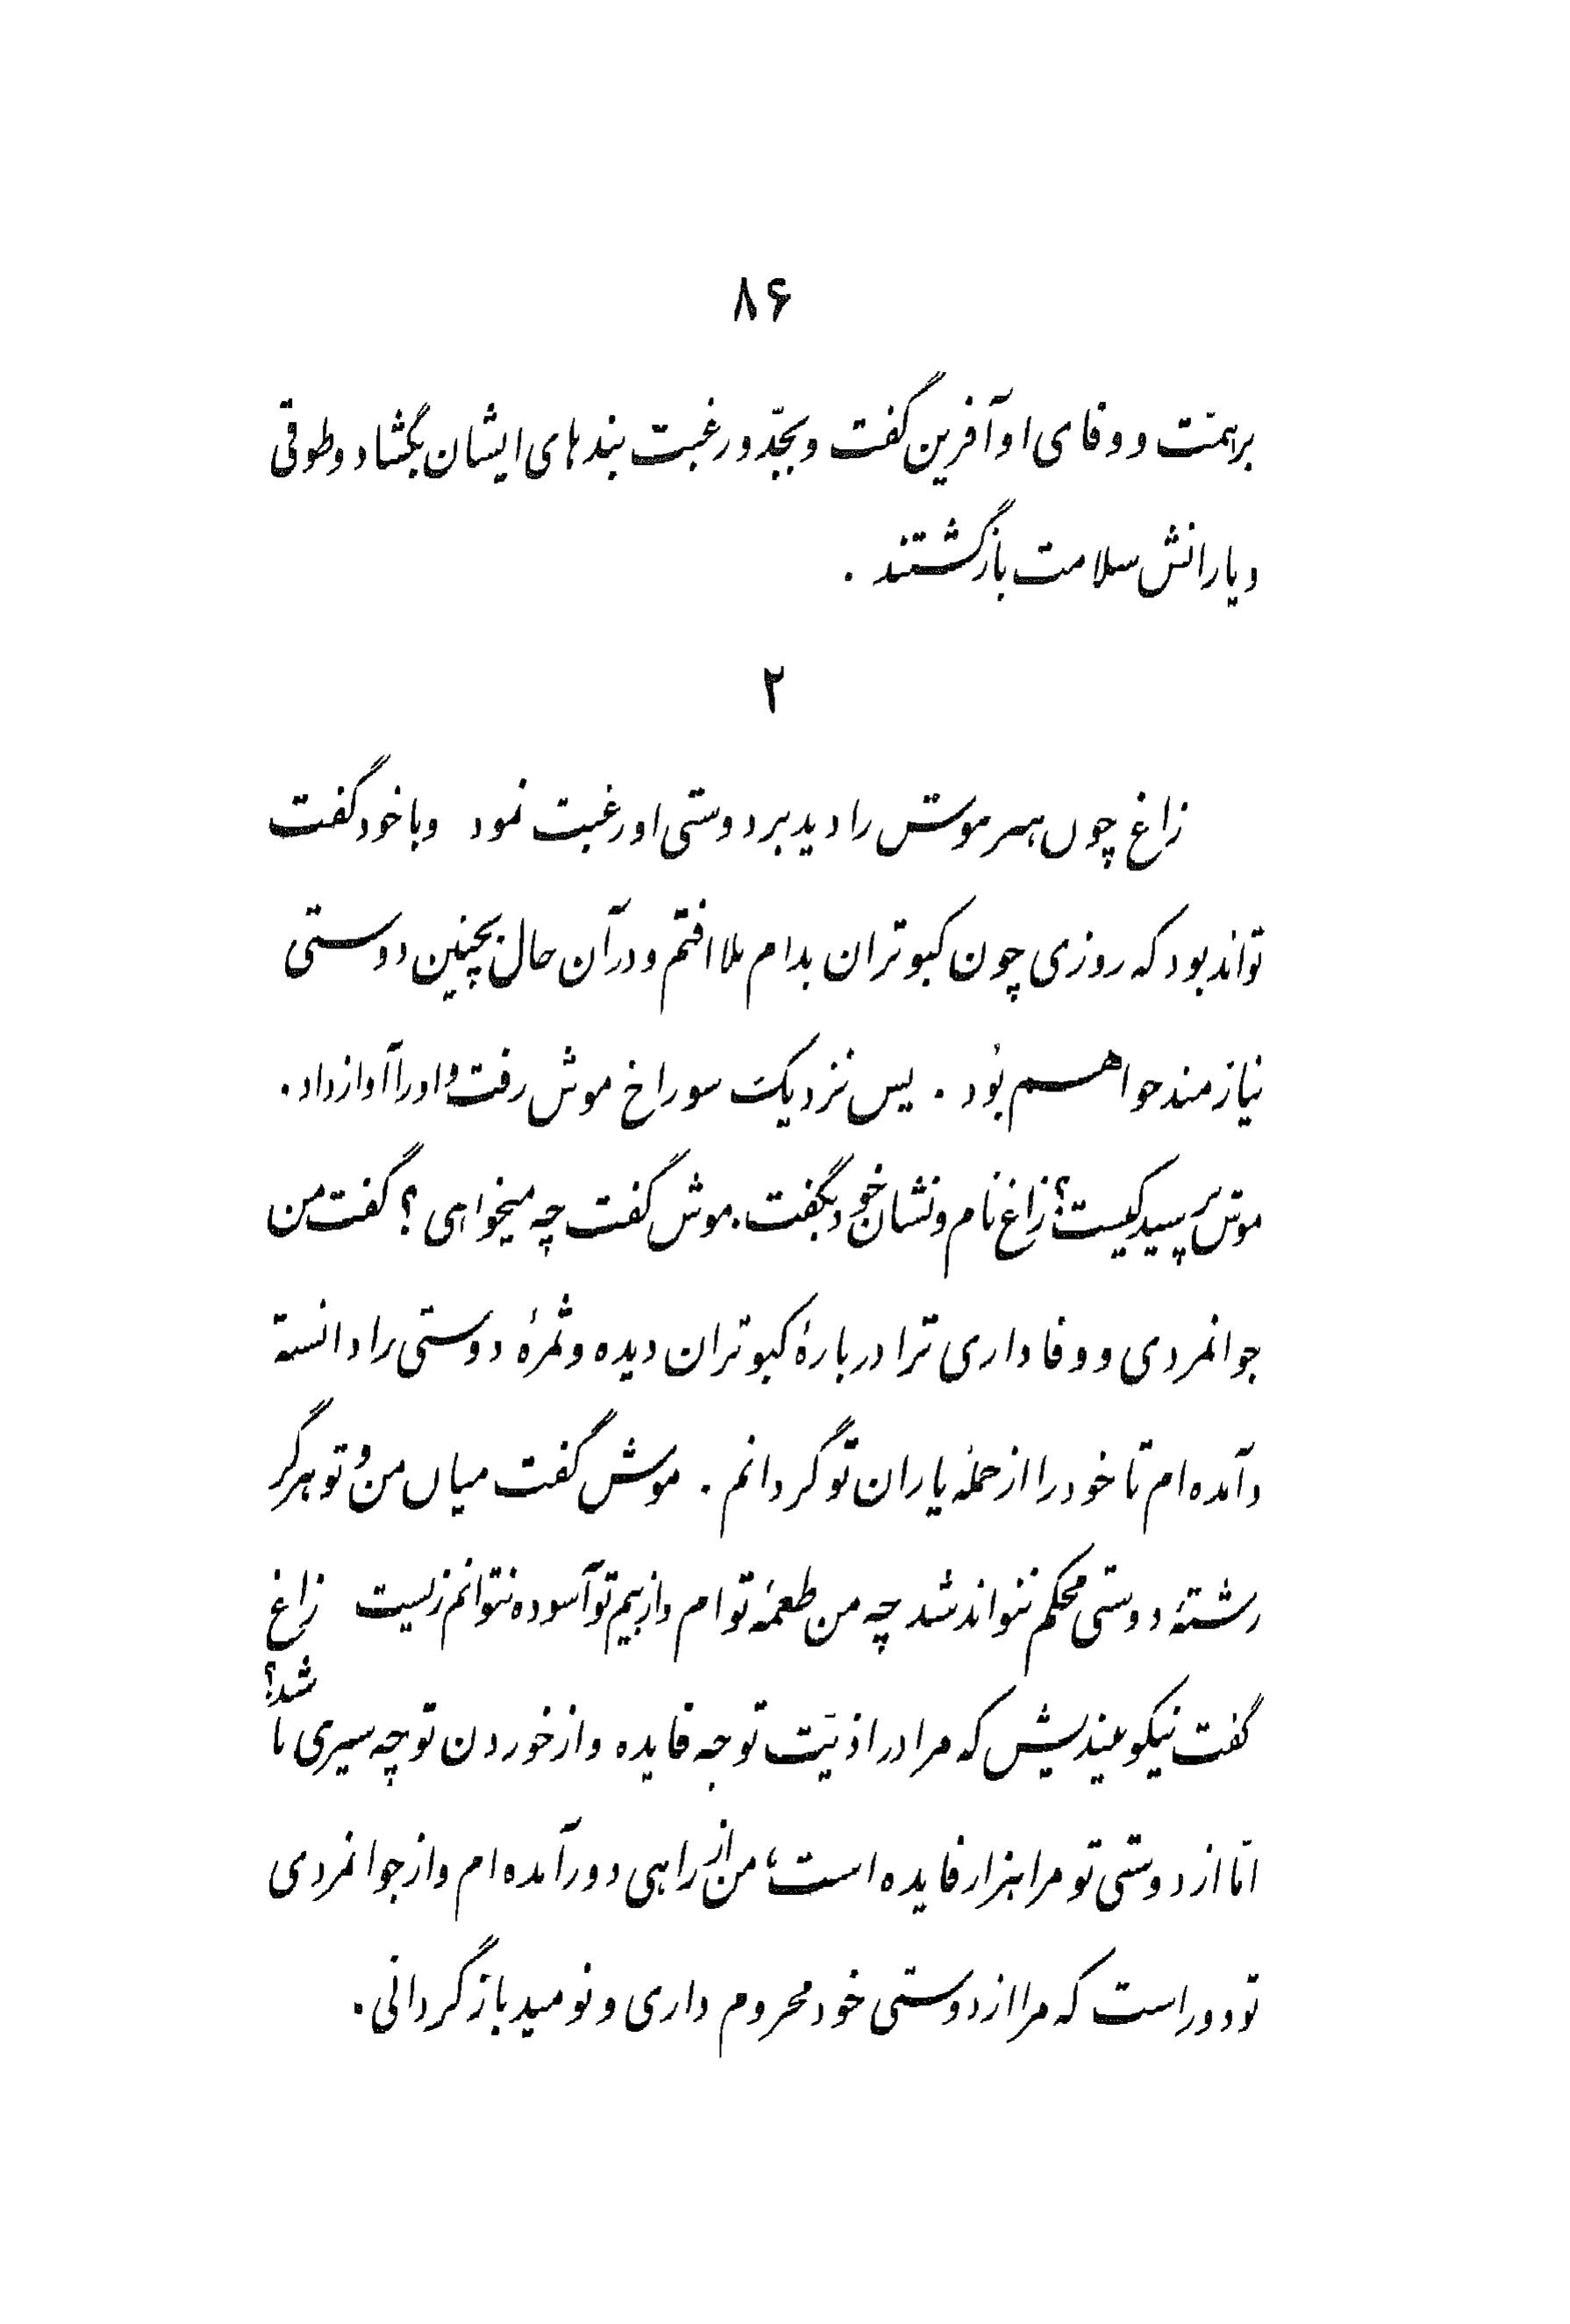 ۸۶
بر همّت و وفای او آفرین گفت و بجدّ و رغبت بندهای ایشان بگشاد و طوقی
و یارانش سلامت بازگشتند .
۲
زاغ چون هنر موش را دید بر دوستی او رغبت نمود و با خود گفت
تواند بود که روزی چون کبوتران بدام بلا افتم و در آن حال بچنین دوستی
نیازمند خواهم بود . پس نزدیک سوراخ موش رفت و او را آواز داد .
موش پرسید کیست؟ زاغ نام و نشان خود بگفت . موش گفت چه میخواهی ؟ گفت من
جوانمردی و وفاداری ترا دربارهٔ کبوتران دیده و ثمرهٔ دوستی را دانسته
و آمده‌ام تا خود را از جملهٔ یاران تو گردانم . موش گفت میان من و تو هرگز
رشتهٔ دوستی محکم نتواند شد چه من طعمهٔ توام و از بیم تو آسوده نتوانم زیست زاغ
گفت نیکو بیندیش که مرا در اذیّت تو چه فایده و از خوردن تو چه سیری با شد؟
امّا از دوستی تو مرا هزار فایده است، من از راهی دور آمده‌ام و از جوانمردی
تو دور است که مرا از دوستی خود محروم داری و نومید باز گردانی .